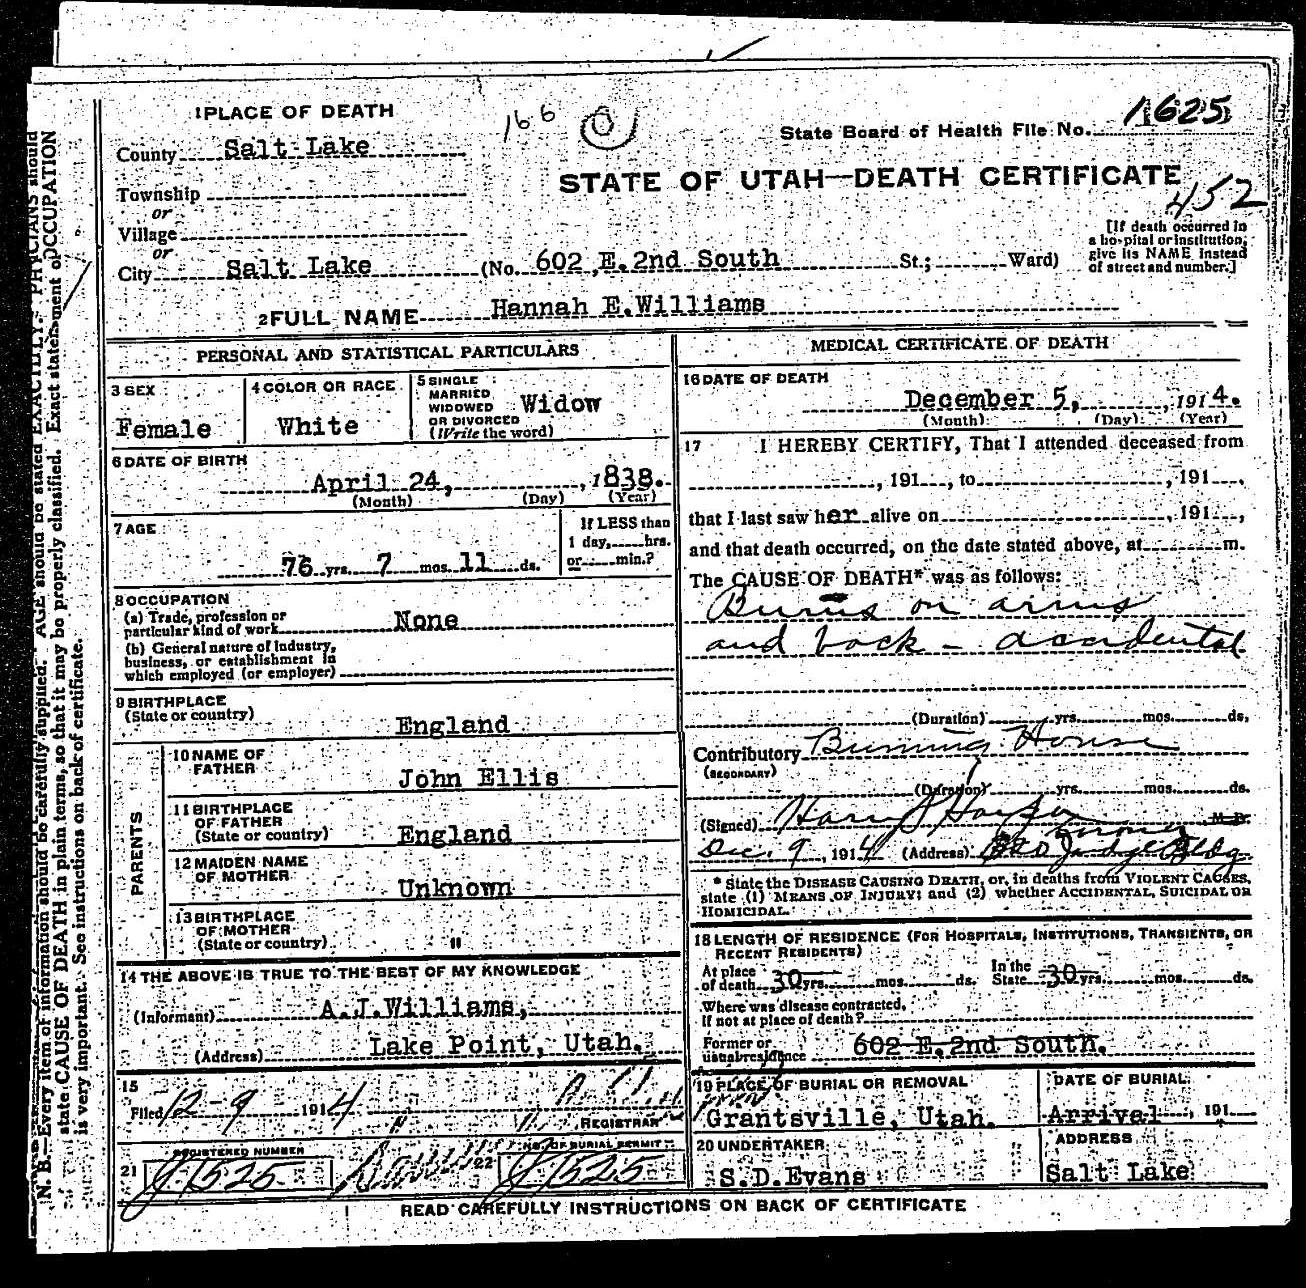 1 PLACE OF DEATH
166
State Board of Health File No. 1625
County Salt Lake
STATE OF UTAH—DEATH CERTIFICATE
452
Township
or
Village
or
City Salt Lake (No. 602 E. 2nd South St.; Ward)
[If death occurred in
a hospital or institution,
give its NAME instead
of street and number.]
2 FULL NAME Hannah E. Williams
PERSONAL AND STATISTICAL PARTICULARS
3 SEX
Female
4 COLOR OR RACE
White
5 SINGLE
MARRIED
WIDOWED
OR DIVORCED
(Write the word)
Widow
6 DATE OF BIRTH
April 24, , 1838.
(Month) (Day) (Year)
7 AGE
76 yrs. 7 mos. 11 ds.
If LESS than
1 day, hrs.
or min.?
8 OCCUPATION
(a) Trade, profession or
particular kind of work None
(b) General nature of industry,
business, or establishment in
which employed (or employer)
9 BIRTHPLACE
(State or country)
England
PARENTS
10 NAME OF
FATHER
John Ellis
11 BIRTHPLACE
OF FATHER
(State or country)
England
12 MAIDEN NAME
OF MOTHER
Unknown
13 BIRTHPLACE
OF MOTHER
(State or country)
"
14 THE ABOVE IS TRUE TO THE BEST OF MY KNOWLEDGE
(Informant) A.J.Williams,
(Address) Lake Point, Utah.
15
Filed 12-9 1914
REGISTRAR
REGISTERED NUMBER
21 J1525
NO. OF BURIAL PERMIT
22 J1525
MEDICAL CERTIFICATE OF DEATH
16 DATE OF DEATH
December 5, , 1914.
(Month) (Day) (Year)
17 I HEREBY CERTIFY, That I attended deceased from
, 191 , to , 191 ,
that I last saw her alive on , 191 ,
and that death occurred, on the date stated above, at m.
The CAUSE OF DEATH* was as follows:
Burns on arms
and back - accidental
(Duration) yrs. mos. ds.
Contributory Burning House
(SECONDARY)
(Duration) yrs. mos. ds.
(Signed) Harry S Harper M.D.
Dec. 9, 1914 (Address) Judge Bldg.
* State the DISEASE CAUSING DEATH, or, in deaths from VIOLENT CAUSES,
state (1) MEANS OF INJURY; and (2) whether ACCIDENTAL, SUICIDAL OR
HOMICIDAL.
18 LENGTH OF RESIDENCE (FOR HOSPITALS, INSTITUTIONS, TRANSIENTS, OR
RECENT RESIDENTS)
At place
of death 30 yrs. mos. ds. In the
State 30 yrs. mos. ds.
Where was disease contracted,
If not at place of death?
Former or
usual residence 602 E. 2nd South.
19 PLACE OF BURIAL OR REMOVAL
Grantsville, Utah.
DATE OF BURIAL
Arrival , 191
20 UNDERTAKER
S.D.Evans
ADDRESS
Salt Lake
READ CAREFULLY INSTRUCTIONS ON BACK OF CERTIFICATE
N. B.—Every item of information should be carefully supplied. AGE should be stated EXACTLY. PHYSICIANS should
state CAUSE OF DEATH in plain terms, so that it may be properly classified. Exact statement of OCCUPATION
is very important. See instructions on back of certificate.